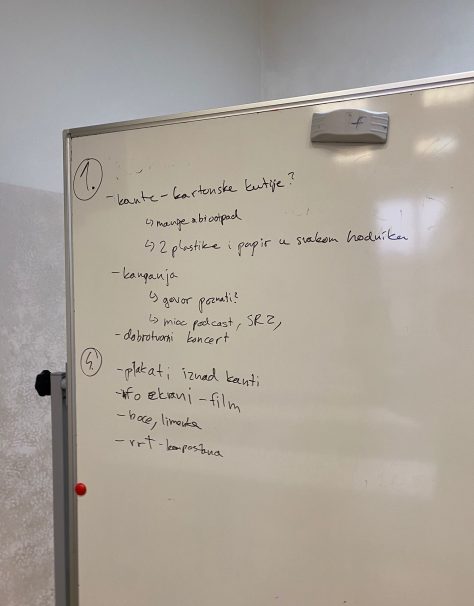 1.
- kante - kartonske kutije?
↳ manje a biootpad
↳ 2 plastike i papir u svakom hodniku
- kampanja
↳ govor poznati?
↳ mioc podcast, SRZ,
- dobrotvorni koncert
2.
- plakati iznad kanti
- info ekrani - film
- boce, limenke
- vrt - kompostana